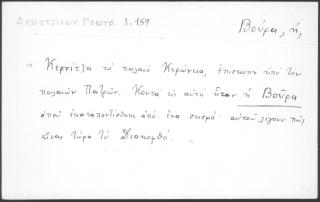 Δημητριέων Γεωγρ. 1-159
Βοῦρα, ἡ,
" Κερνίτζα τὸ παλαιὸ Κερύνεια, ἐπισκοπὴ ὑπὸ τὸν
παλαιῶν Πατρῶν. Κοντὰ εἰς αὐτὴ ἦταν ἡ Βοῦρα
ὁποῦ ἐκαταποντίσθηκε ἀπὸ ἕνα σεισμό· αὐτοῦ λέγουν πῶς
εἶναι τώρα τὸ Διακοφτό.